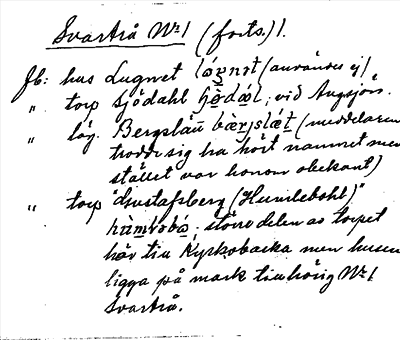 Svartrå No 1 (forts.) 1.
Jb: hus Lugnet (användes ej)
" torp Sjödahl vid Avasjön.
" läg. Bergslätt (meddelaren
trodde sig ha hört namnet men
stället var honom obekant)
" torp "Gustafsberg (Humlebohl)"
större delen av torpet
hör till Kyrkobacka men husen
ligga på mark tillhörig No 1
Svartrå.